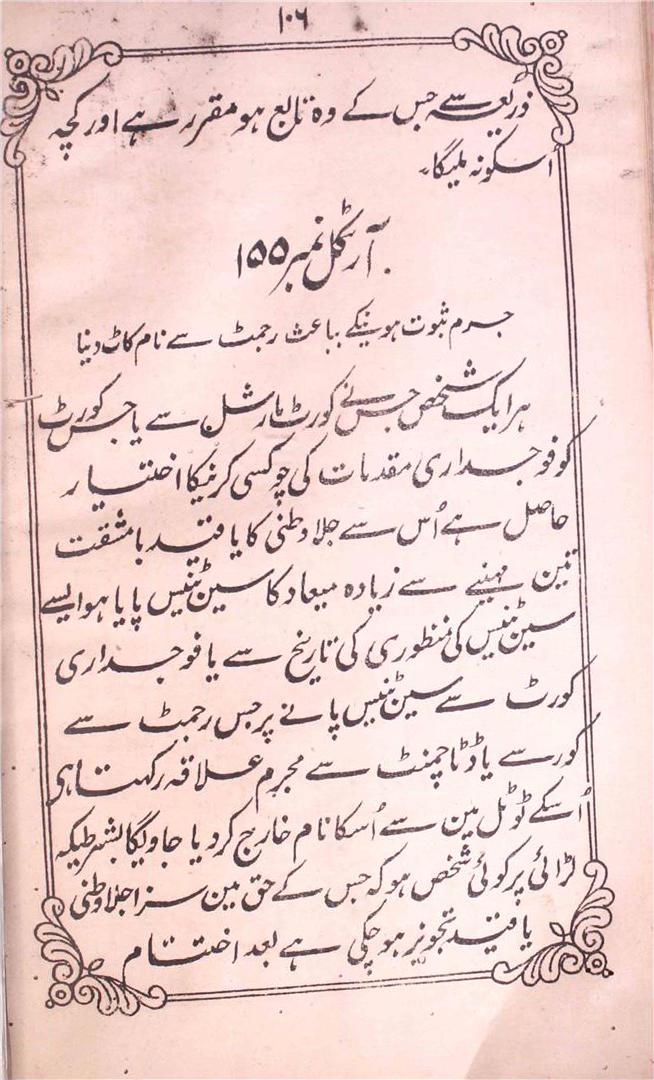 ۱۰۶
ذریعہ سے جس کے وہ تابع ہو مقرر ہے اور کچہ
اُسکو نہ ملیگا۔
آرٹکل نمبر ۱۵۵
جرم ثبوت ہونیکے بباعث رجمٹ سے نام کاٹ دینا
ہر ایک شخص جس نے کورٹ مارشل سے یا جس کورٹ
کو فوجداری مقدمات کی چوکسی کرنیکا اختیار
حاصل ہے اُس سے جلاوطنی کا یا قید با مشقت
تین مہینے سے زیادہ میعاد کا سین ٹنیس پایا ہو ایسے
سین ٹنیس کی منظوری کی تاریخ سے یا فوجداری
کورٹ سے سین ٹنیس پانے پر جس رجمٹ سے
کور سے یا ڈٹاچمنٹ سے مجرم علاقہ رکہتا ہی
اُسکے ٹوٹل مین سے اُسکا نام خارج کر دیا جاویگا بشرطیکہ
لڑائی پر کوئی شخص ہو کہ جس کے حق مین سزا جلاوطنی
یا قید تجویز ہو چکی ہے بعد اختتام